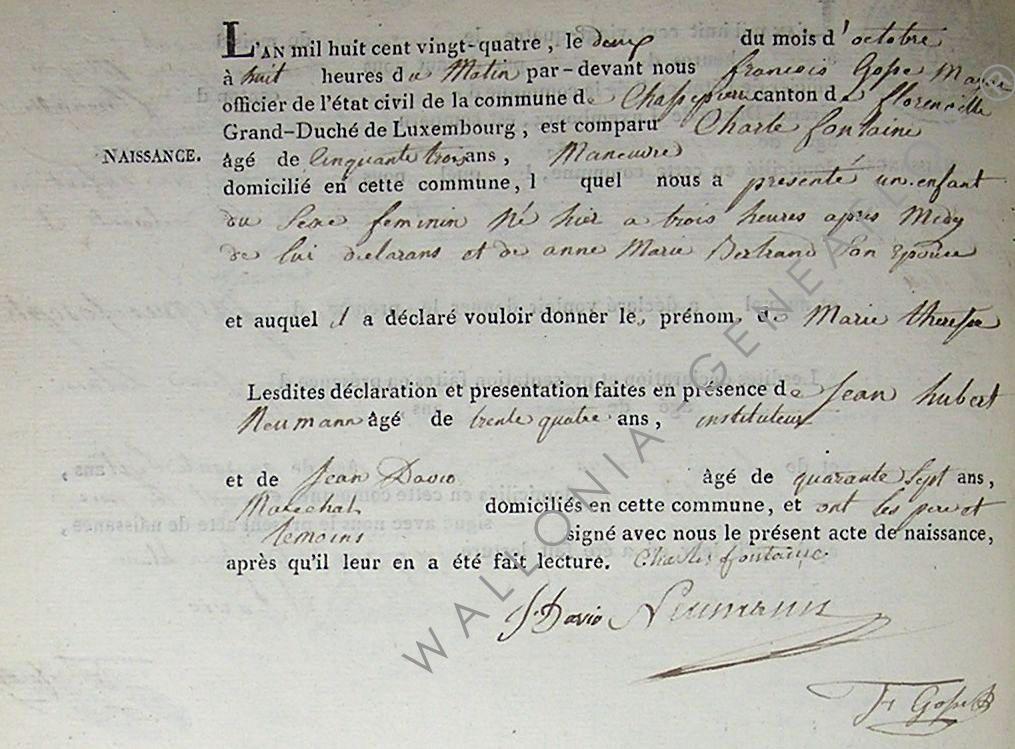 L'AN mil huit cent vingt-quatre, le deux du mois d'octobre
à huit heures du Matin par-devant nous francois Gosse Maire
officier de l'état civil de la commune de Chassepierre canton de florenville
Grand-Duché de Luxembourg, est comparu Charle fontaine
NAISSANCE. âgé de Cinquante trois ans, Maneuvre
domicilié en cette commune, l quel nous a présenté un enfant
du Sexe feminin Né hier a trois heures apres Midy
de lui declarans et de anne Marie Bertrand son Epouse
et auquel il a déclaré vouloir donner les prénom de Marie therese
Lesdites déclaration et presentation faites en présence de Jean hubert
Neumann âgé de trente quatre ans, instituteur
et de Jean David âgé de quarante Sept ans,
Marechal domiciliés en cette commune, et ont les pere et
temoins signé avec nous le présent acte de naissance,
après qu'il leur en a été fait lecture. Charles fontaine
J. David Neumann
F Gosse
WALLONIA GENEALO